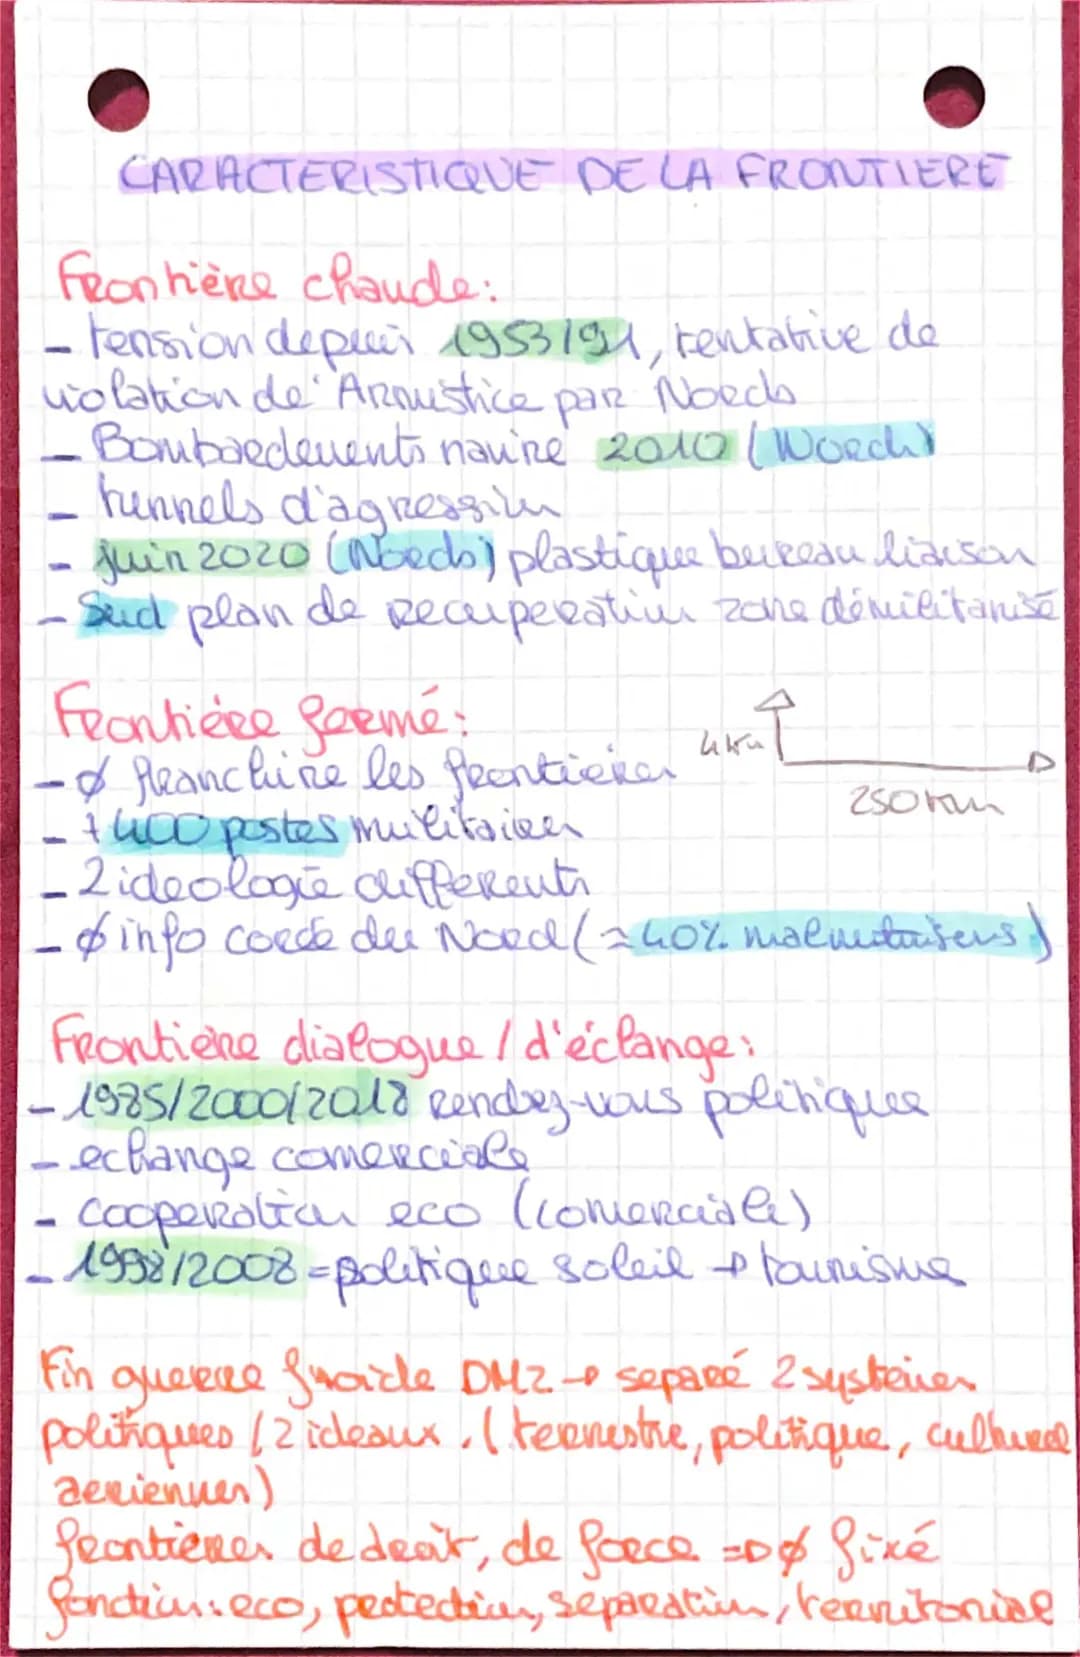 CARACTERISTIQUE DE LA FRONTIERE
Frontière chaude:
- tension depuis 1953/91, tentative de
violation de Armistice par Nords
- Bombardements navire 2010 (Nord)
- tunnels d'agression
- juin 2020 (Nords) plastique bureau liaison
- Sud plan de recuperation zone démilitarisé
Frontière fermé:
- Ø franchire les frontières
4km
250 km
- + 400 postes militaires
- 2 ideologie differents
- Ø info corée du Nord (≈40% malnutrisens)
Frontière dialogue / d'échange:
- 1985/2000/2018 rendez-vous politiques
- echange comerciale
- cooperation eco (comerciale)
- 1998/2008 = politique soleil → tourisme
Fin guerre froide DMZ → separé 2 systèmes
politiques / 2 ideaux. (terrestre, politique, culturel
aeriennes)
frontieres de droit, de force => Ø fixé
fonction: eco, protection, séparation, territoriale